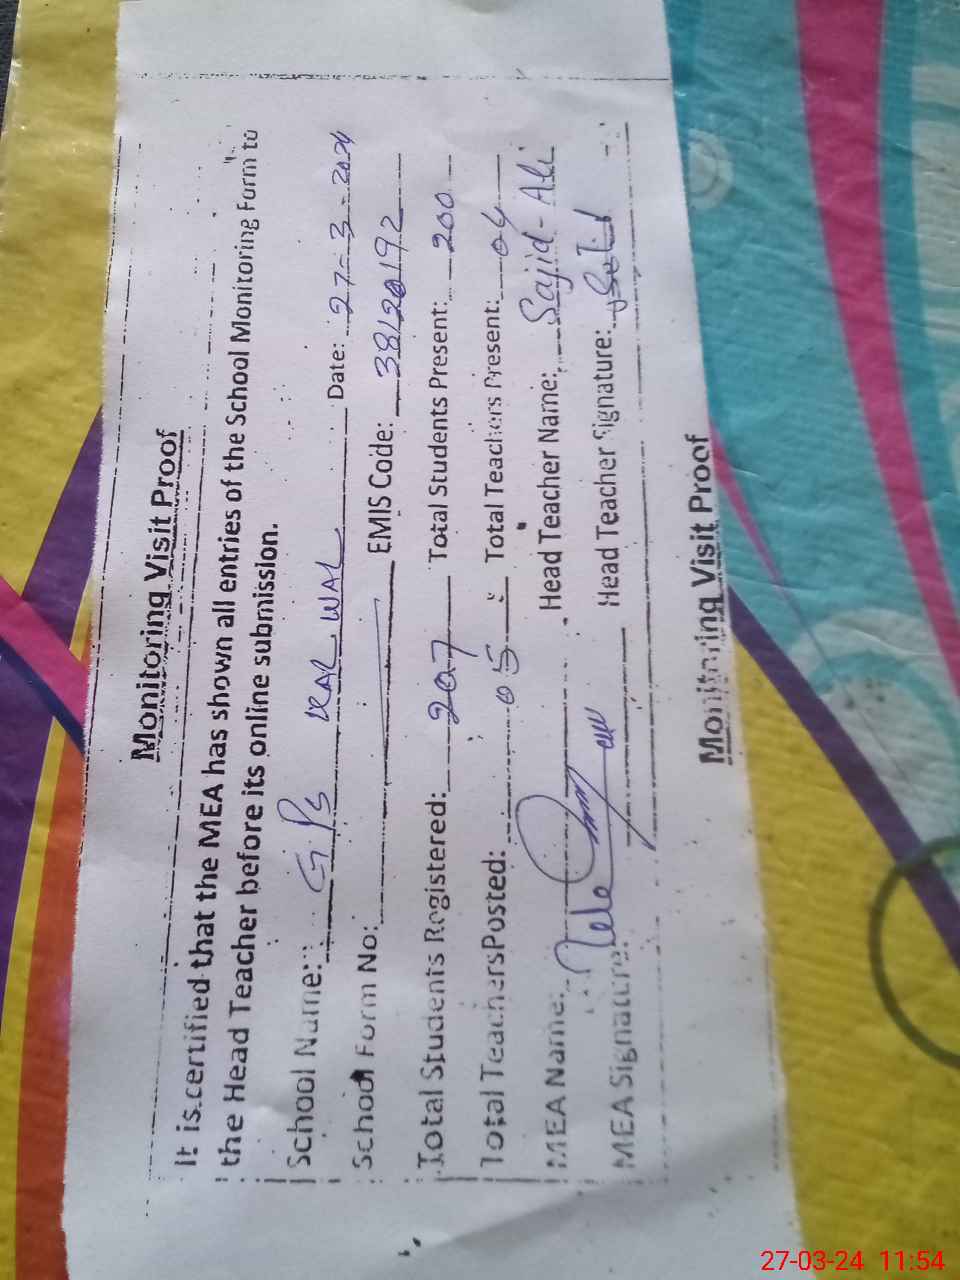 Monitoring Visit Proof
It is certified that the MEA has shown all entries of the School Monitoring Form to
the Head Teacher before its online submission.
School Name: GPS KALWAL Date: 27-3-2024
School Form No: EMIS Code: 38120192
Total Students Registered: 207 Total Students Present: 200
Total Teachers Posted: 05 Total Teachers Present: 04
MEA Name: Head Teacher Name: Sajid-Ali
MEA Signature: Head Teacher Signature:
Monitoring Visit Proof
27-03-24 11:54